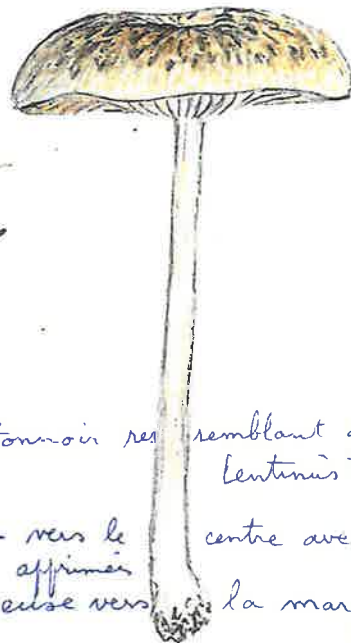 tonnoir res semblant a
Lentinus
vers le centre ave
apprimées
euse vers la mar